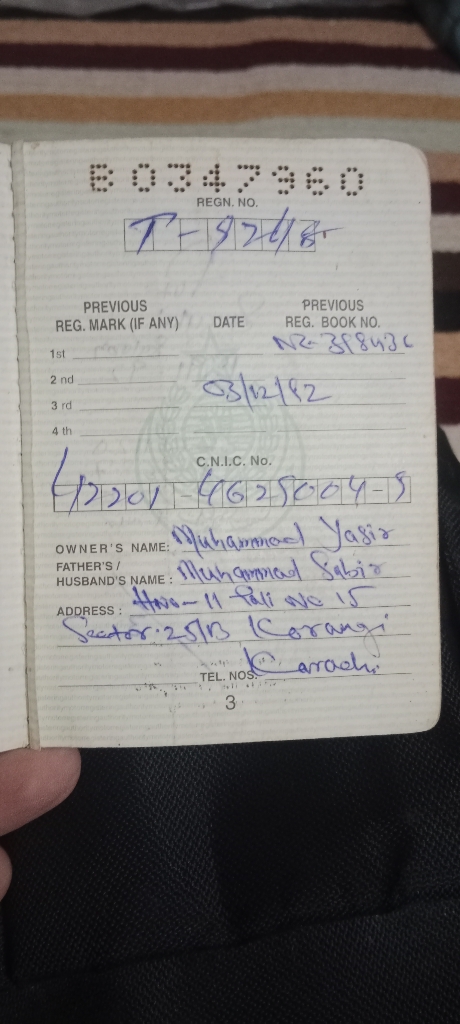 B0347960
REGN. NO.
PREVIOUS REG. MARK (IF ANY)
DATE
PREVIOUS REG. BOOK NO.
1st
2nd
03/12/92
3rd
4th
C.N.I.C. No.
42201-4625004-9
OWNER'S NAME: Muhammad Yasir
FATHER'S / HUSBAND'S NAME: Muhammad Sabir
ADDRESS: Hno-11 Gali No 15
Sector. 25/B Korangi
Karachi
TEL. NOS.
3